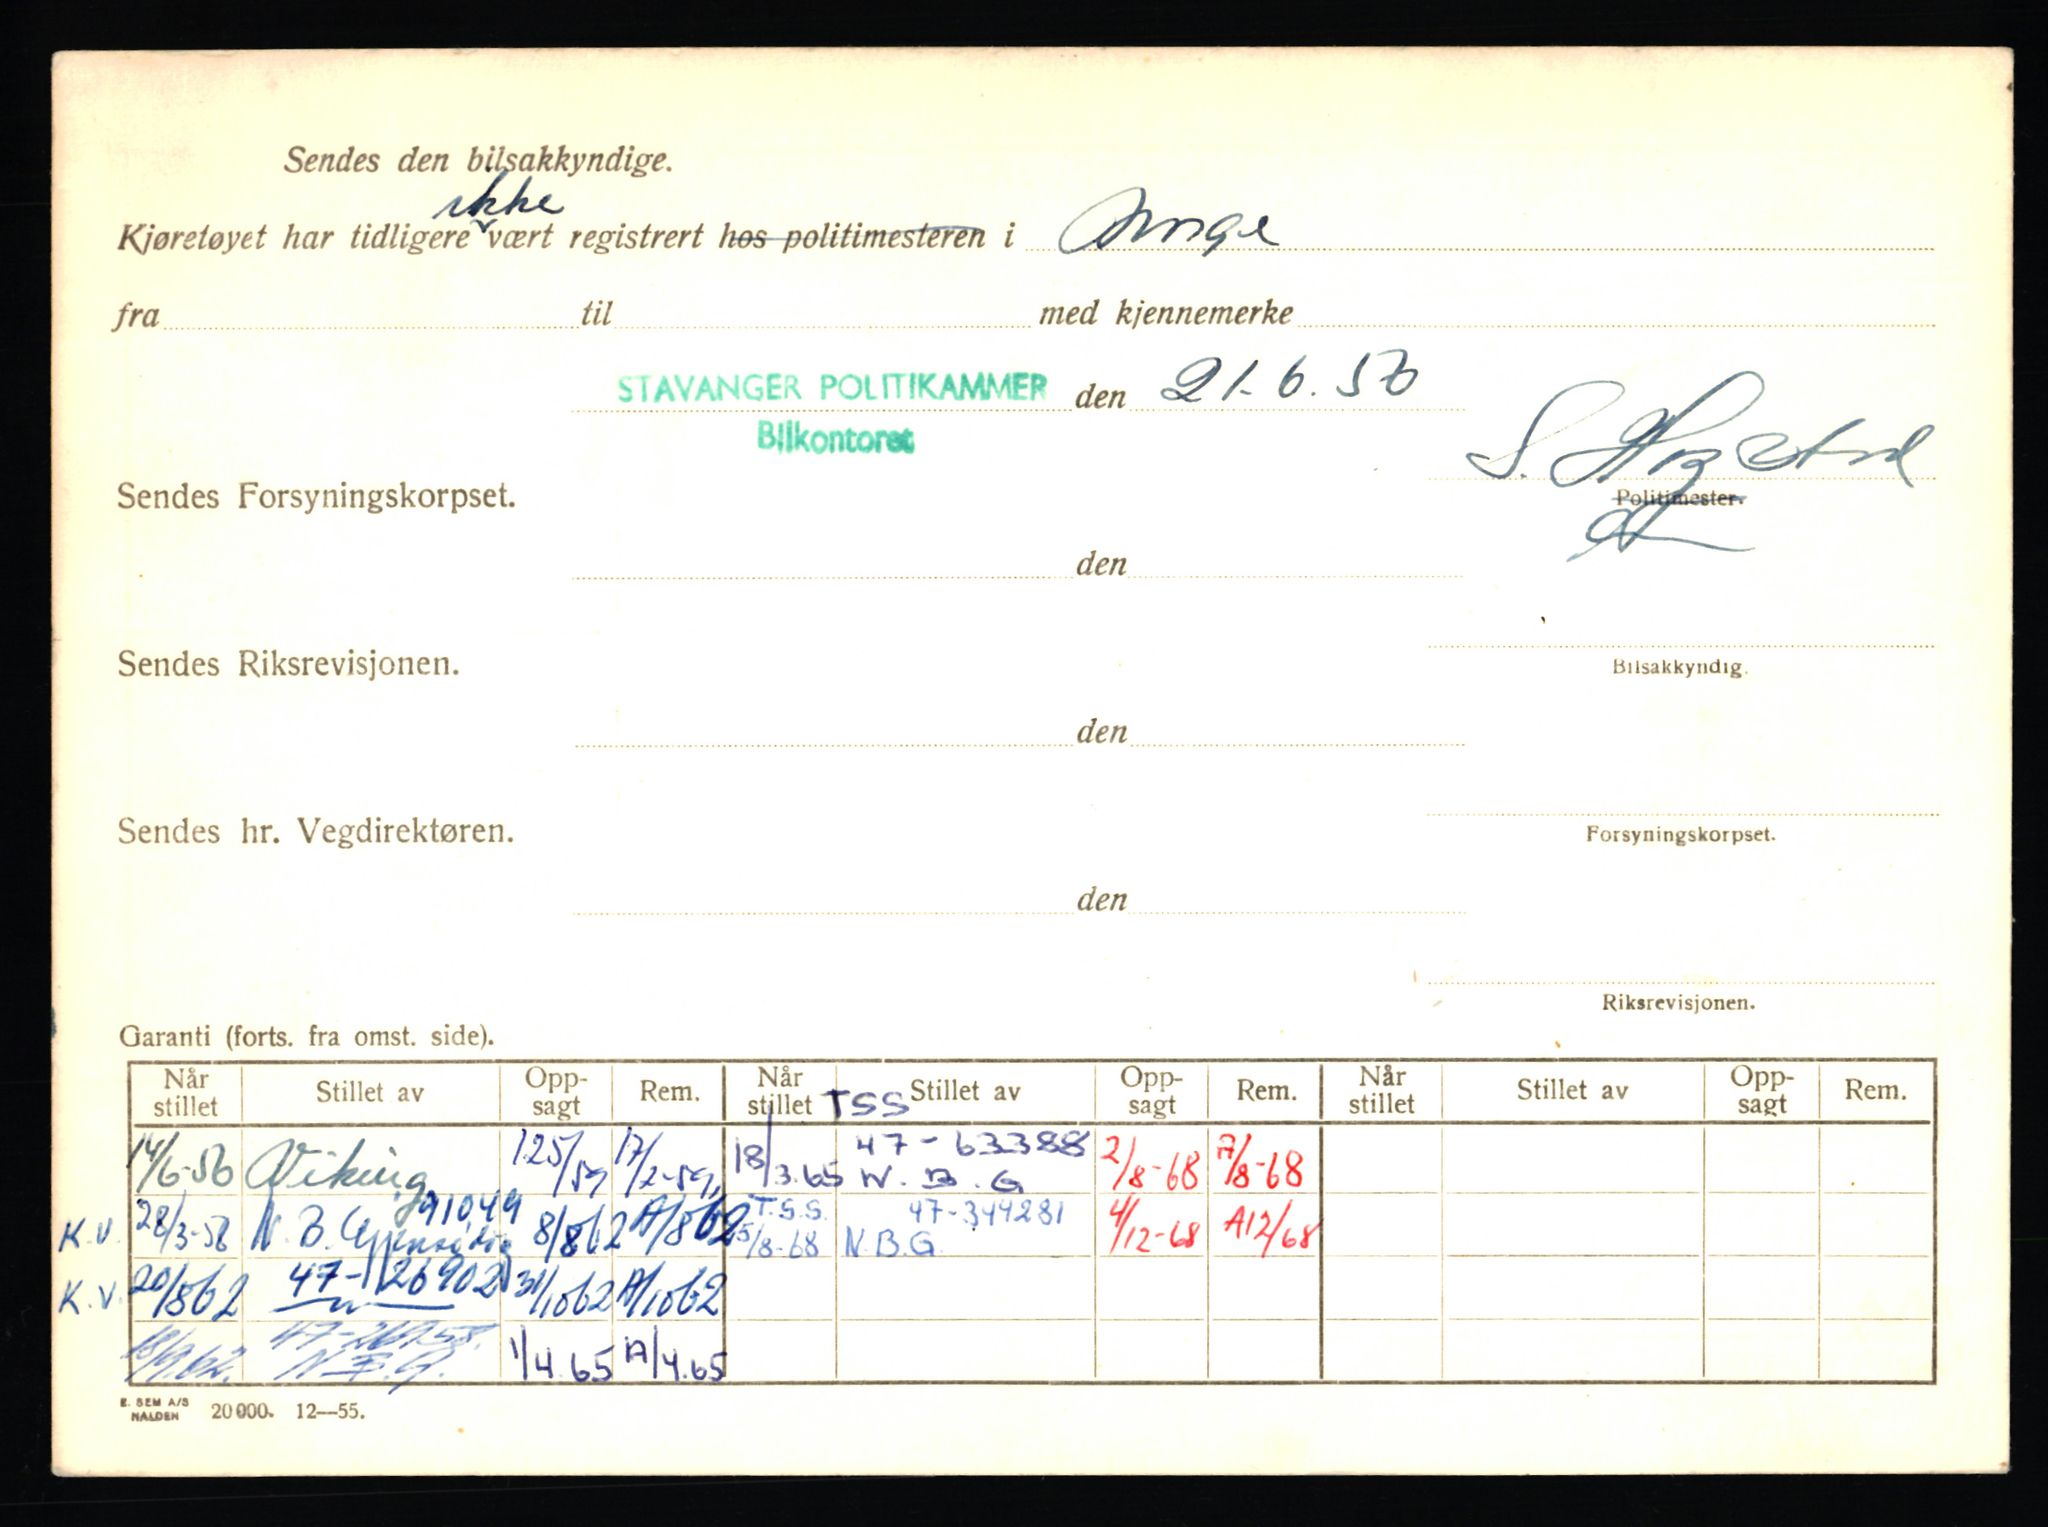 Sendes den bilsakkyndige.
ikke
Kjøretøyet har tidligere vært registrert hos politimesteren i Norge
fra til med kjennemerke
STAVANGER POLITIKAMMER den 21.6.56
Bilkontoret
Sendes Forsyningskorpset.
Politimester.
den
Sendes Riksrevisjonen.
Bilsakkyndig.
den
Sendes hr. Vegdirektøren.
Forsyningskorpset.
den
Riksrevisjonen.
Garanti (forts. fra omst. side).
Når stillet Stillet av Opp-sagt Rem. Når stillet TSS Stillet av Opp-sagt Rem. Når stillet Stillet av Opp-sagt Rem.
14/6-56 Viking 17/2-59, 18/3.65 47-63388 N.B.G 2/8-68 A/8-68
K.V. 28/3-58 N.B. Gjensidig 91049 8/8 62 A/8 62 T.S.S. 5/8-68 47-344281 N.B.G. 4/12-68 A12/68
K.V. 20/8 62 47-126902 31/10 62 A/10 62
N.B.G. 1/4.65 A/4.65
E. SEM A/S
HALDEN 20000. 12—55.